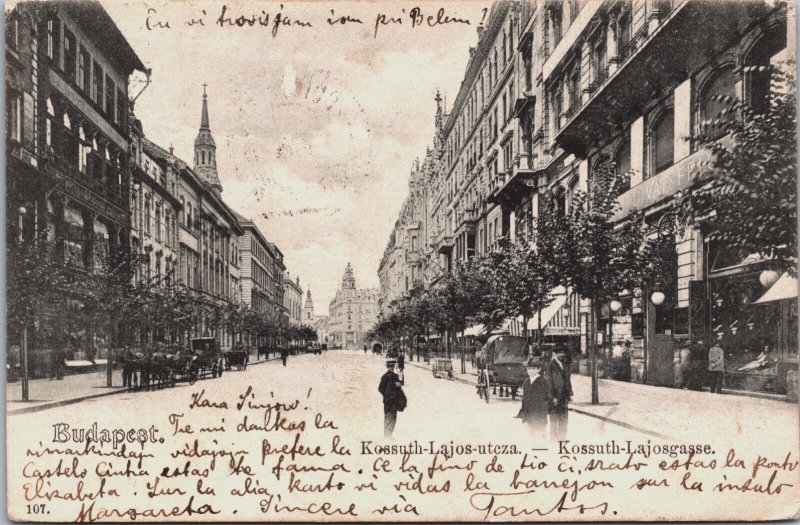 Ĉu vi trovis jam iom pri Belem!
Kara Sinjoro!
Tre mi dankas la
rimarkindajn vidajojn prefere la
Castelo Cintra estas tre fama. Ĉe la fino de tio ĉi strato estas la ponto
Elizabeta. Sur la alia karto vi vidas la banejon sur la insulo
Margareta. Sincere via
Budapest.
Kossuth-Lajos-utcza. — Kossuth-Lajosgasse.
107.